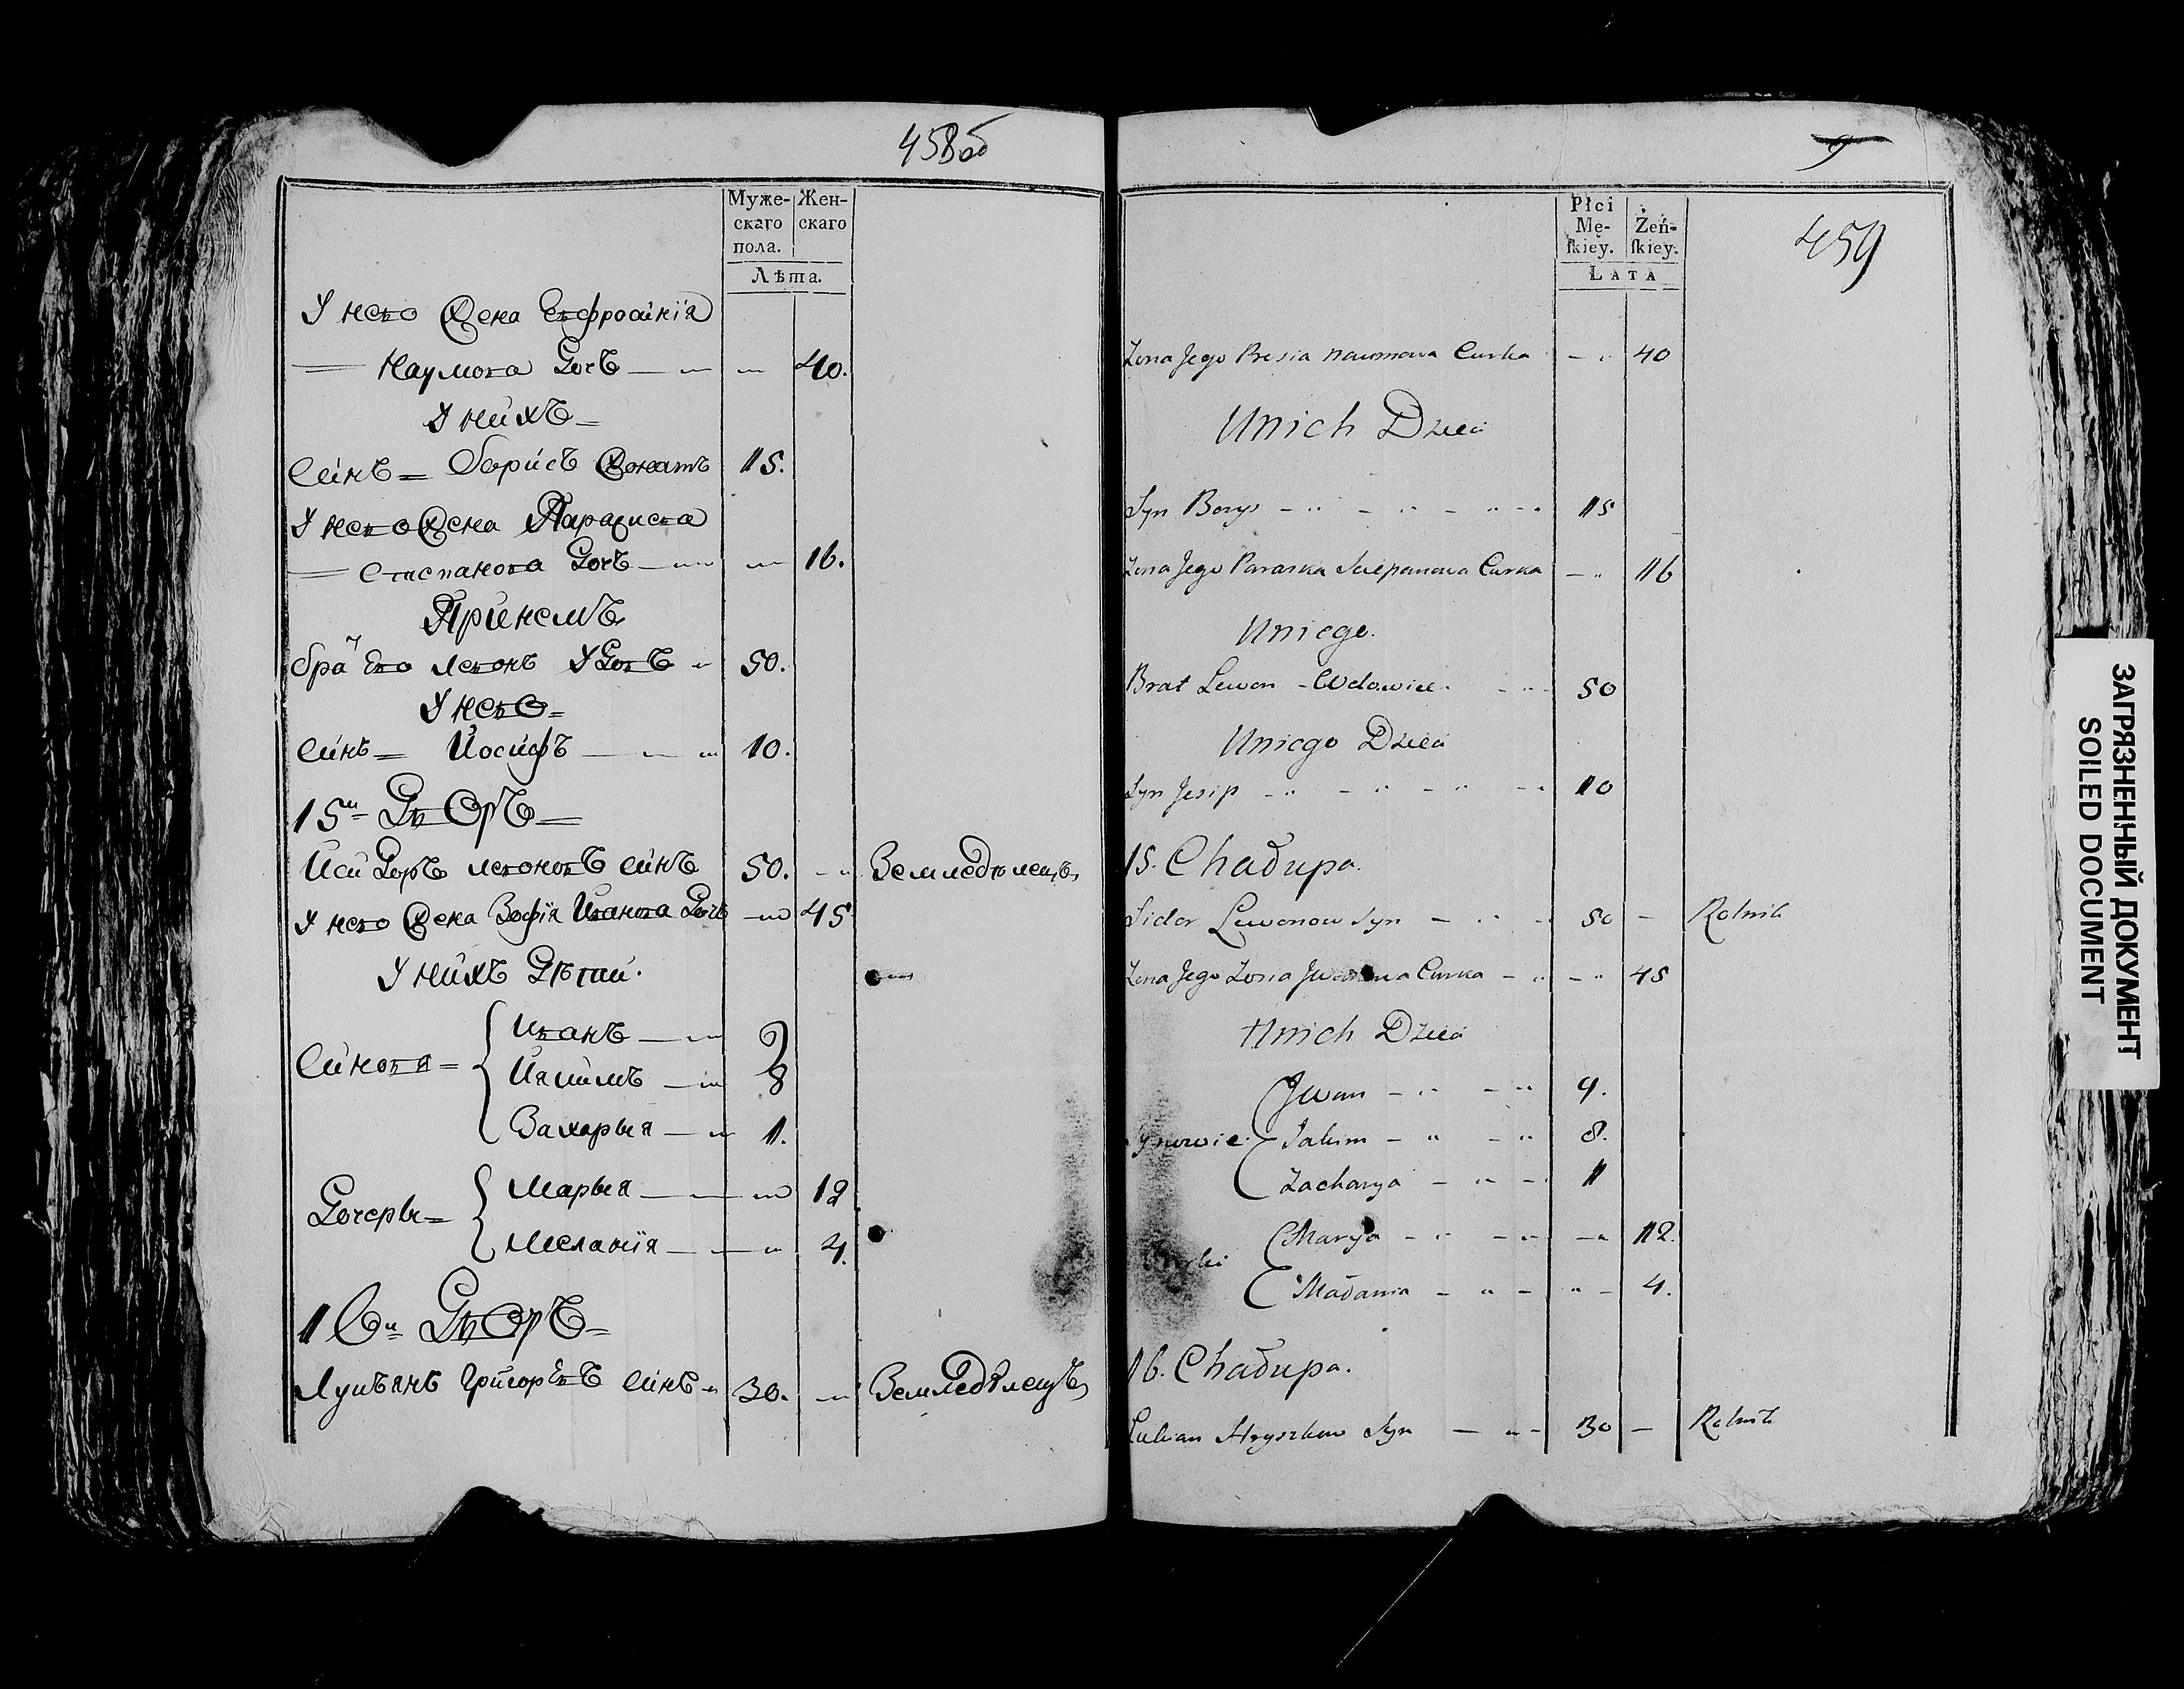 458об
Муже-
скаго
пола.
Жен-
скаго
Лѣта.
У него Жена Евфросинія
— Наумова Дочь — 40.
У нихъ =
Сінъ = Борисъ Женатъ 15.
У него Жена Параписва
— Степанова Дочь — 16.
При немъ
Братъ Его Левонъ Удовъ 50.
У него =
Сінъ = Иосифъ — 10.
15й Дворъ =
Исидоръ Левоновъ Синъ 50. — Земледѣлецъ
У него Жена Зофія Иванова Дочь — 45
У нихъ Дѣти.
Синовя =
Иванъ — 9
Иякимъ — 8
Захарыя — 1.
Дочеры =
Марыя — 12
Меланія — 4.
16й Дворъ =
Лукъянъ Григорьевъ Синъ 30. — Земледѣлецъ
9
459
Płci
Mę-
ſkiey.
Żeń-
ſkiey.
LATA
Zona Jego Presia Naumowa Curka — 40
Unich Dzieci
Syn Borys — 15
Zona Jego Paraska Sciepanowa Curka — 16
Uniego.
Brat Lewon Wdowiec 50
Uniego Dzieci
Syn Jesip — 10
15. Chałupa.
Sidor Lewonow Syn — 50 — Rolnik
Zona Jego Zosia Jwanowa Curka — 45
Unich Dzieci
Jwan — 9.
Synowie Jakim — 8.
Zacharya — 1
Marya — 12.
Curki
Małania — 4.
16. Chałupa.
Lukian Hryszkow Syn — 30 — Rolnik
ЗАГРЯЗНЕННЫЙ ДОКУМЕНТ
SOILED DOCUMENT